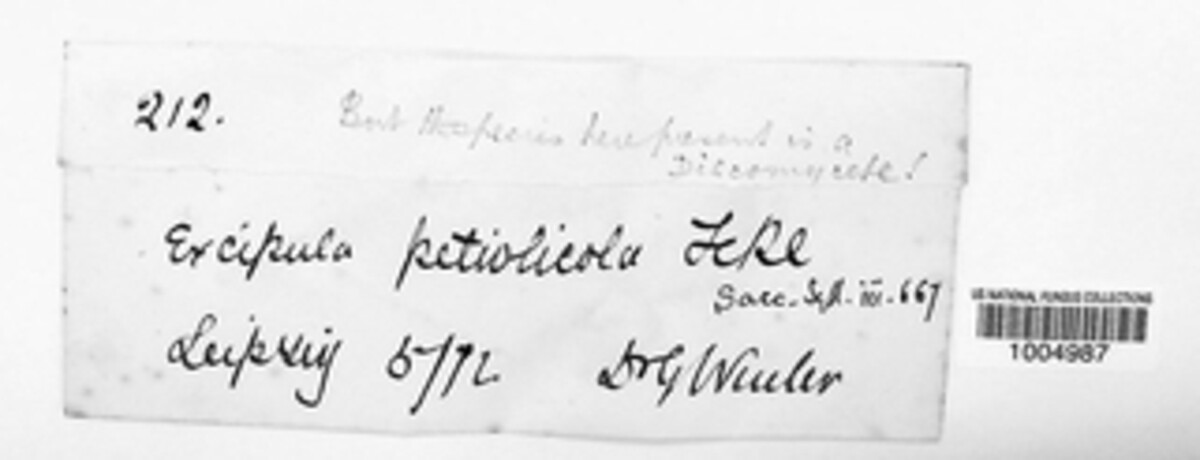 212.
But the species here present is a
Discomycete!
Excipula petiolicola Fckl
Sacc. Syll. III. 667
Leipzig 5/72 Dr G Winter
US NATIONAL FUNGUS COLLECTIONS
1004987